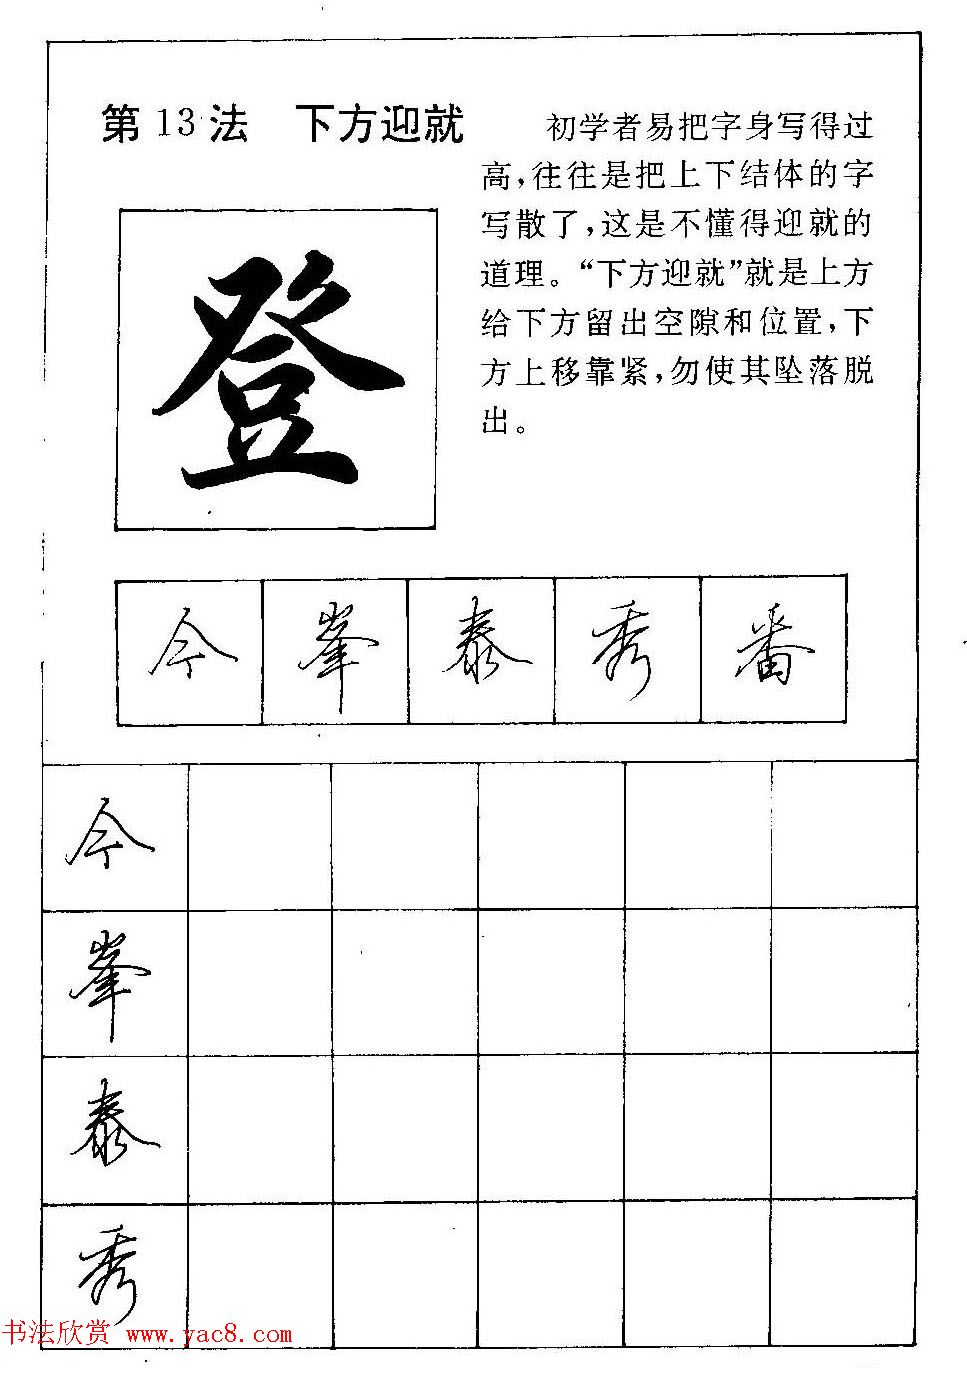 第13法 下方迎就
初学者易把字身写得过
高，往往是把上下结体的字
写散了，这是不懂得迎就的
道理。“下方迎就”就是上方
给下方留出空隙和位置，下
方上移靠紧，勿使其坠落脱
出。
登
今 峯 泰 秀 番
今
峯
泰
秀
书法欣赏 www.yac8.com